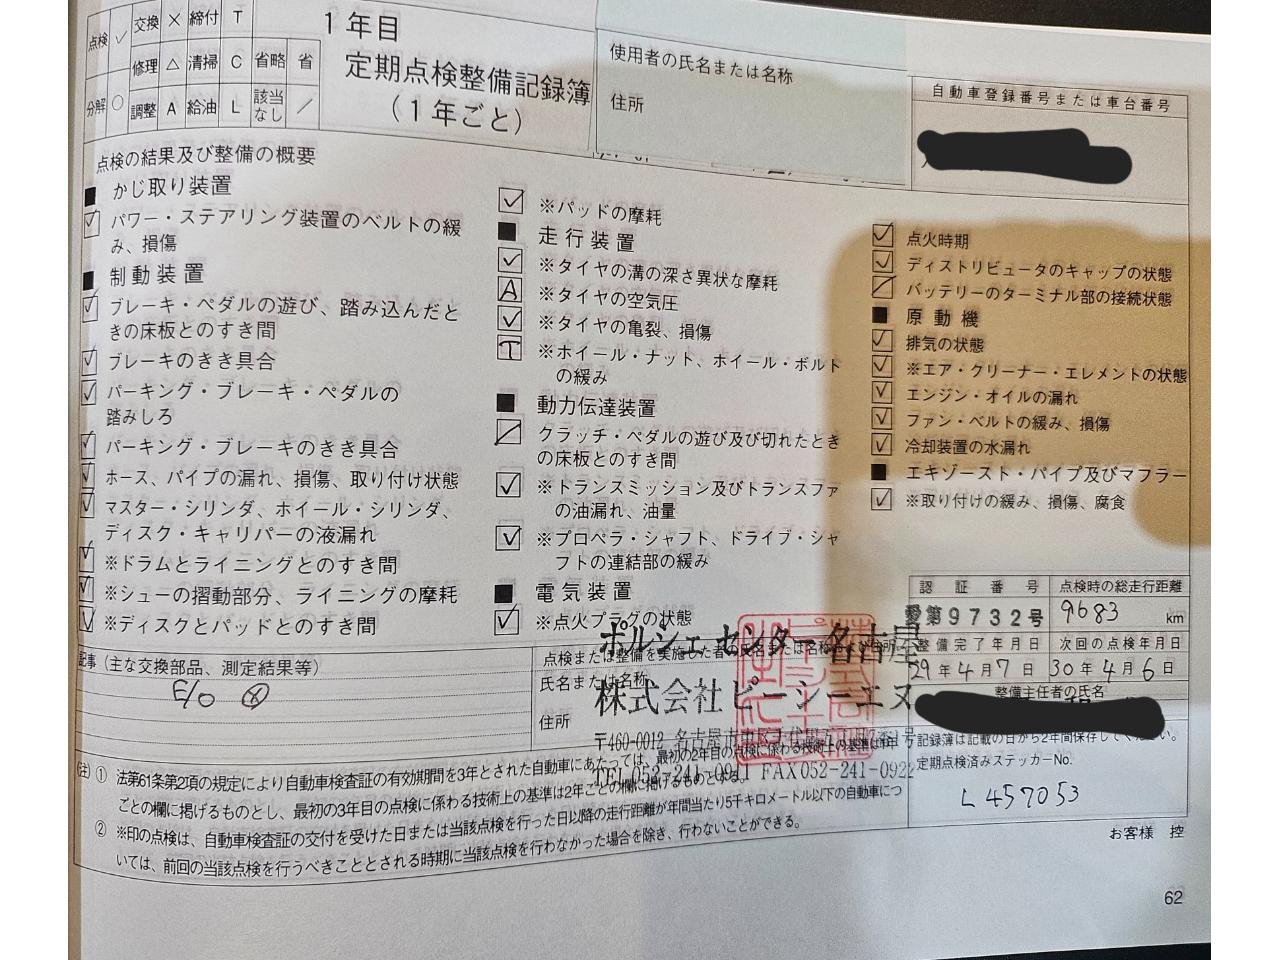 点検 ✓ 交換 × 締付 T
修理 △ 清掃 C 省略 省
分解 ○ 調整 A 給油 L 該当なし ／
1年目
定期点検整備記録簿
（1年ごと）
使用者の氏名または名称
住所
自動車登録番号または車台番号
点検の結果及び整備の概要
■ かじ取り装置
✓ パワー・ステアリング装置のベルトの緩
み、損傷
■ 制動装置
✓ ブレーキ・ペダルの遊び、踏み込んだと
きの床板とのすき間
✓ ブレーキのきき具合
✓ パーキング・ブレーキ・ペダルの
踏みしろ
✓ パーキング・ブレーキのきき具合
✓ ホース、パイプの漏れ、損傷、取り付け状態
✓ マスター・シリンダ、ホイール・シリンダ、
ディスク・キャリパーの液漏れ
✓ ※ドラムとライニングとのすき間
✓ ※シューの摺動部分、ライニングの摩耗
✓ ※ディスクとパッドとのすき間
✓ ※パッドの摩耗
■ 走行装置
✓ ※タイヤの溝の深さ異状な摩耗
A ※タイヤの空気圧
✓ ※タイヤの亀裂、損傷
T ※ホイール・ナット、ホイール・ボルト
の緩み
■ 動力伝達装置
／ クラッチ・ペダルの遊び及び切れたとき
の床板とのすき間
✓ ※トランスミッション及びトランスファ
の油漏れ、油量
✓ ※プロペラ・シャフト、ドライブ・シャ
フトの連結部の緩み
■ 電気装置
✓ ※点火プラグの状態
✓ 点火時期
✓ ディストリビュータのキャップの状態
／ バッテリーのターミナル部の接続状態
■ 原動機
✓ 排気の状態
✓ ※エア・クリーナー・エレメントの状態
✓ エンジン・オイルの漏れ
✓ ファン・ベルトの緩み、損傷
✓ 冷却装置の水漏れ
■ エキゾースト・パイプ及びマフラー
✓ ※取り付けの緩み、損傷、腐食
認証番号 点検時の総走行距離
愛第9732号 9683 km
整備完了年月日 次回の点検年月日
29年4月7日 30年4月6日
整備主任者の氏名
記事（主な交換部品、測定結果等）
E/O ⊗
点検または整備を実施した者の氏名または名称および住所
ポルシェ センター 名古屋
氏名または名称
株式会社ピーシーエヌ
住所
〒460-0012 名古屋市中区千代田五丁目7番1号
TEL052-241-0911 FAX052-241-0922
記録簿は記載の日から2年間保存してください。
定期点検済みステッカーNo.
L457053
(注) ① 法第61条第2項の規定により自動車検査証の有効期間を3年とされた自動車にあたっては、最初の2年目の点検に係わる技術上の基準は1年
ごとの欄に掲げるものとし、最初の3年目の点検に係わる技術上の基準は2年ごとの欄に掲げるものとする。
② ※印の点検は、自動車検査証の交付を受けた日または当該点検を行った日以降の走行距離が年間当たり5千キロメートル以下の自動車につ
いては、前回の当該点検を行うべきこととされる時期に当該点検を行わなかった場合を除き、行わないことができる。
お客様 控
62